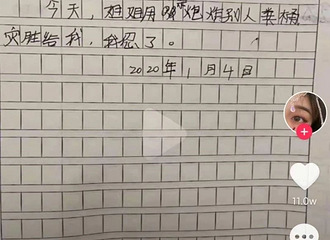 今天，姐姐用鞭炮炸别人粪桶
灾胜给我，我忍了。
2020年1月4日
11.0w